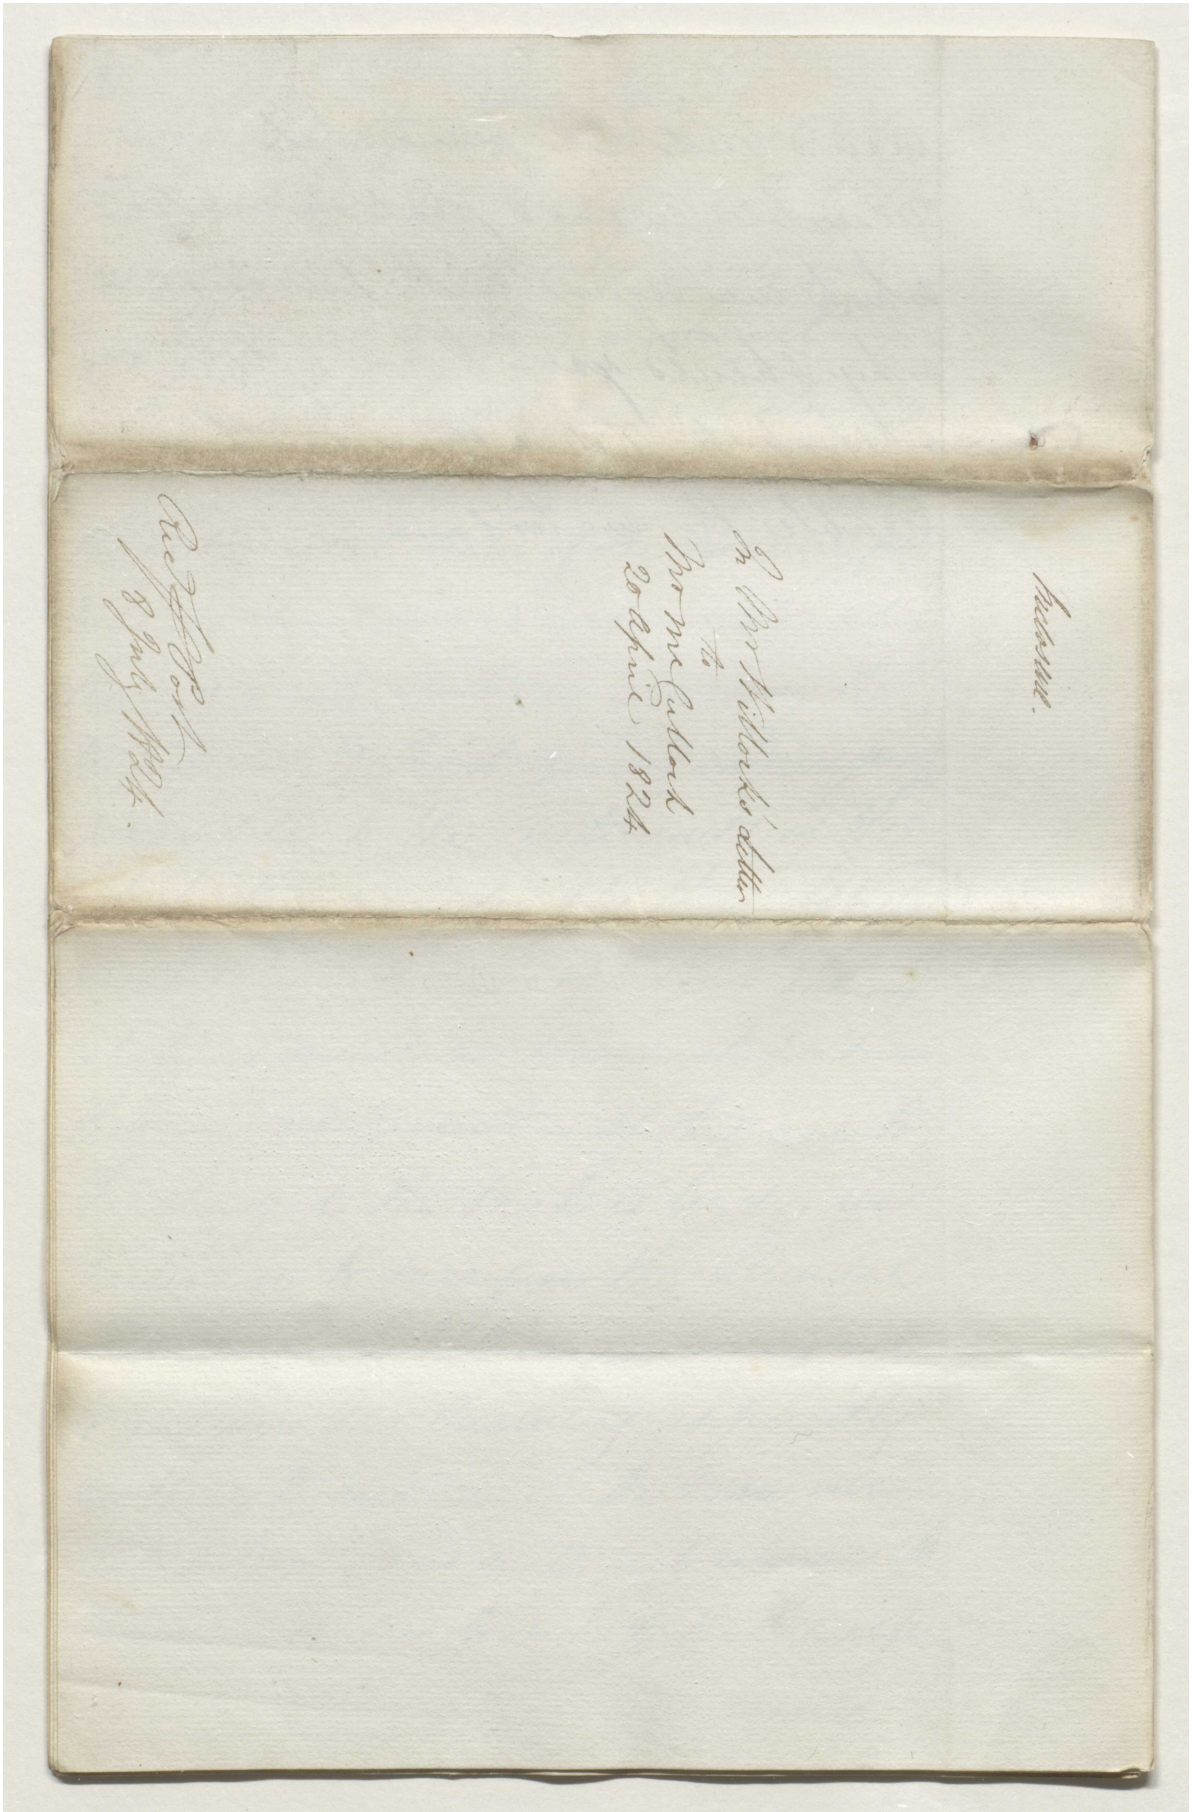 Inclosure.
In Mr Willock's letter
to
Mr McCulloch
20 April 1824
Rec'd P Post
8 July 1824.